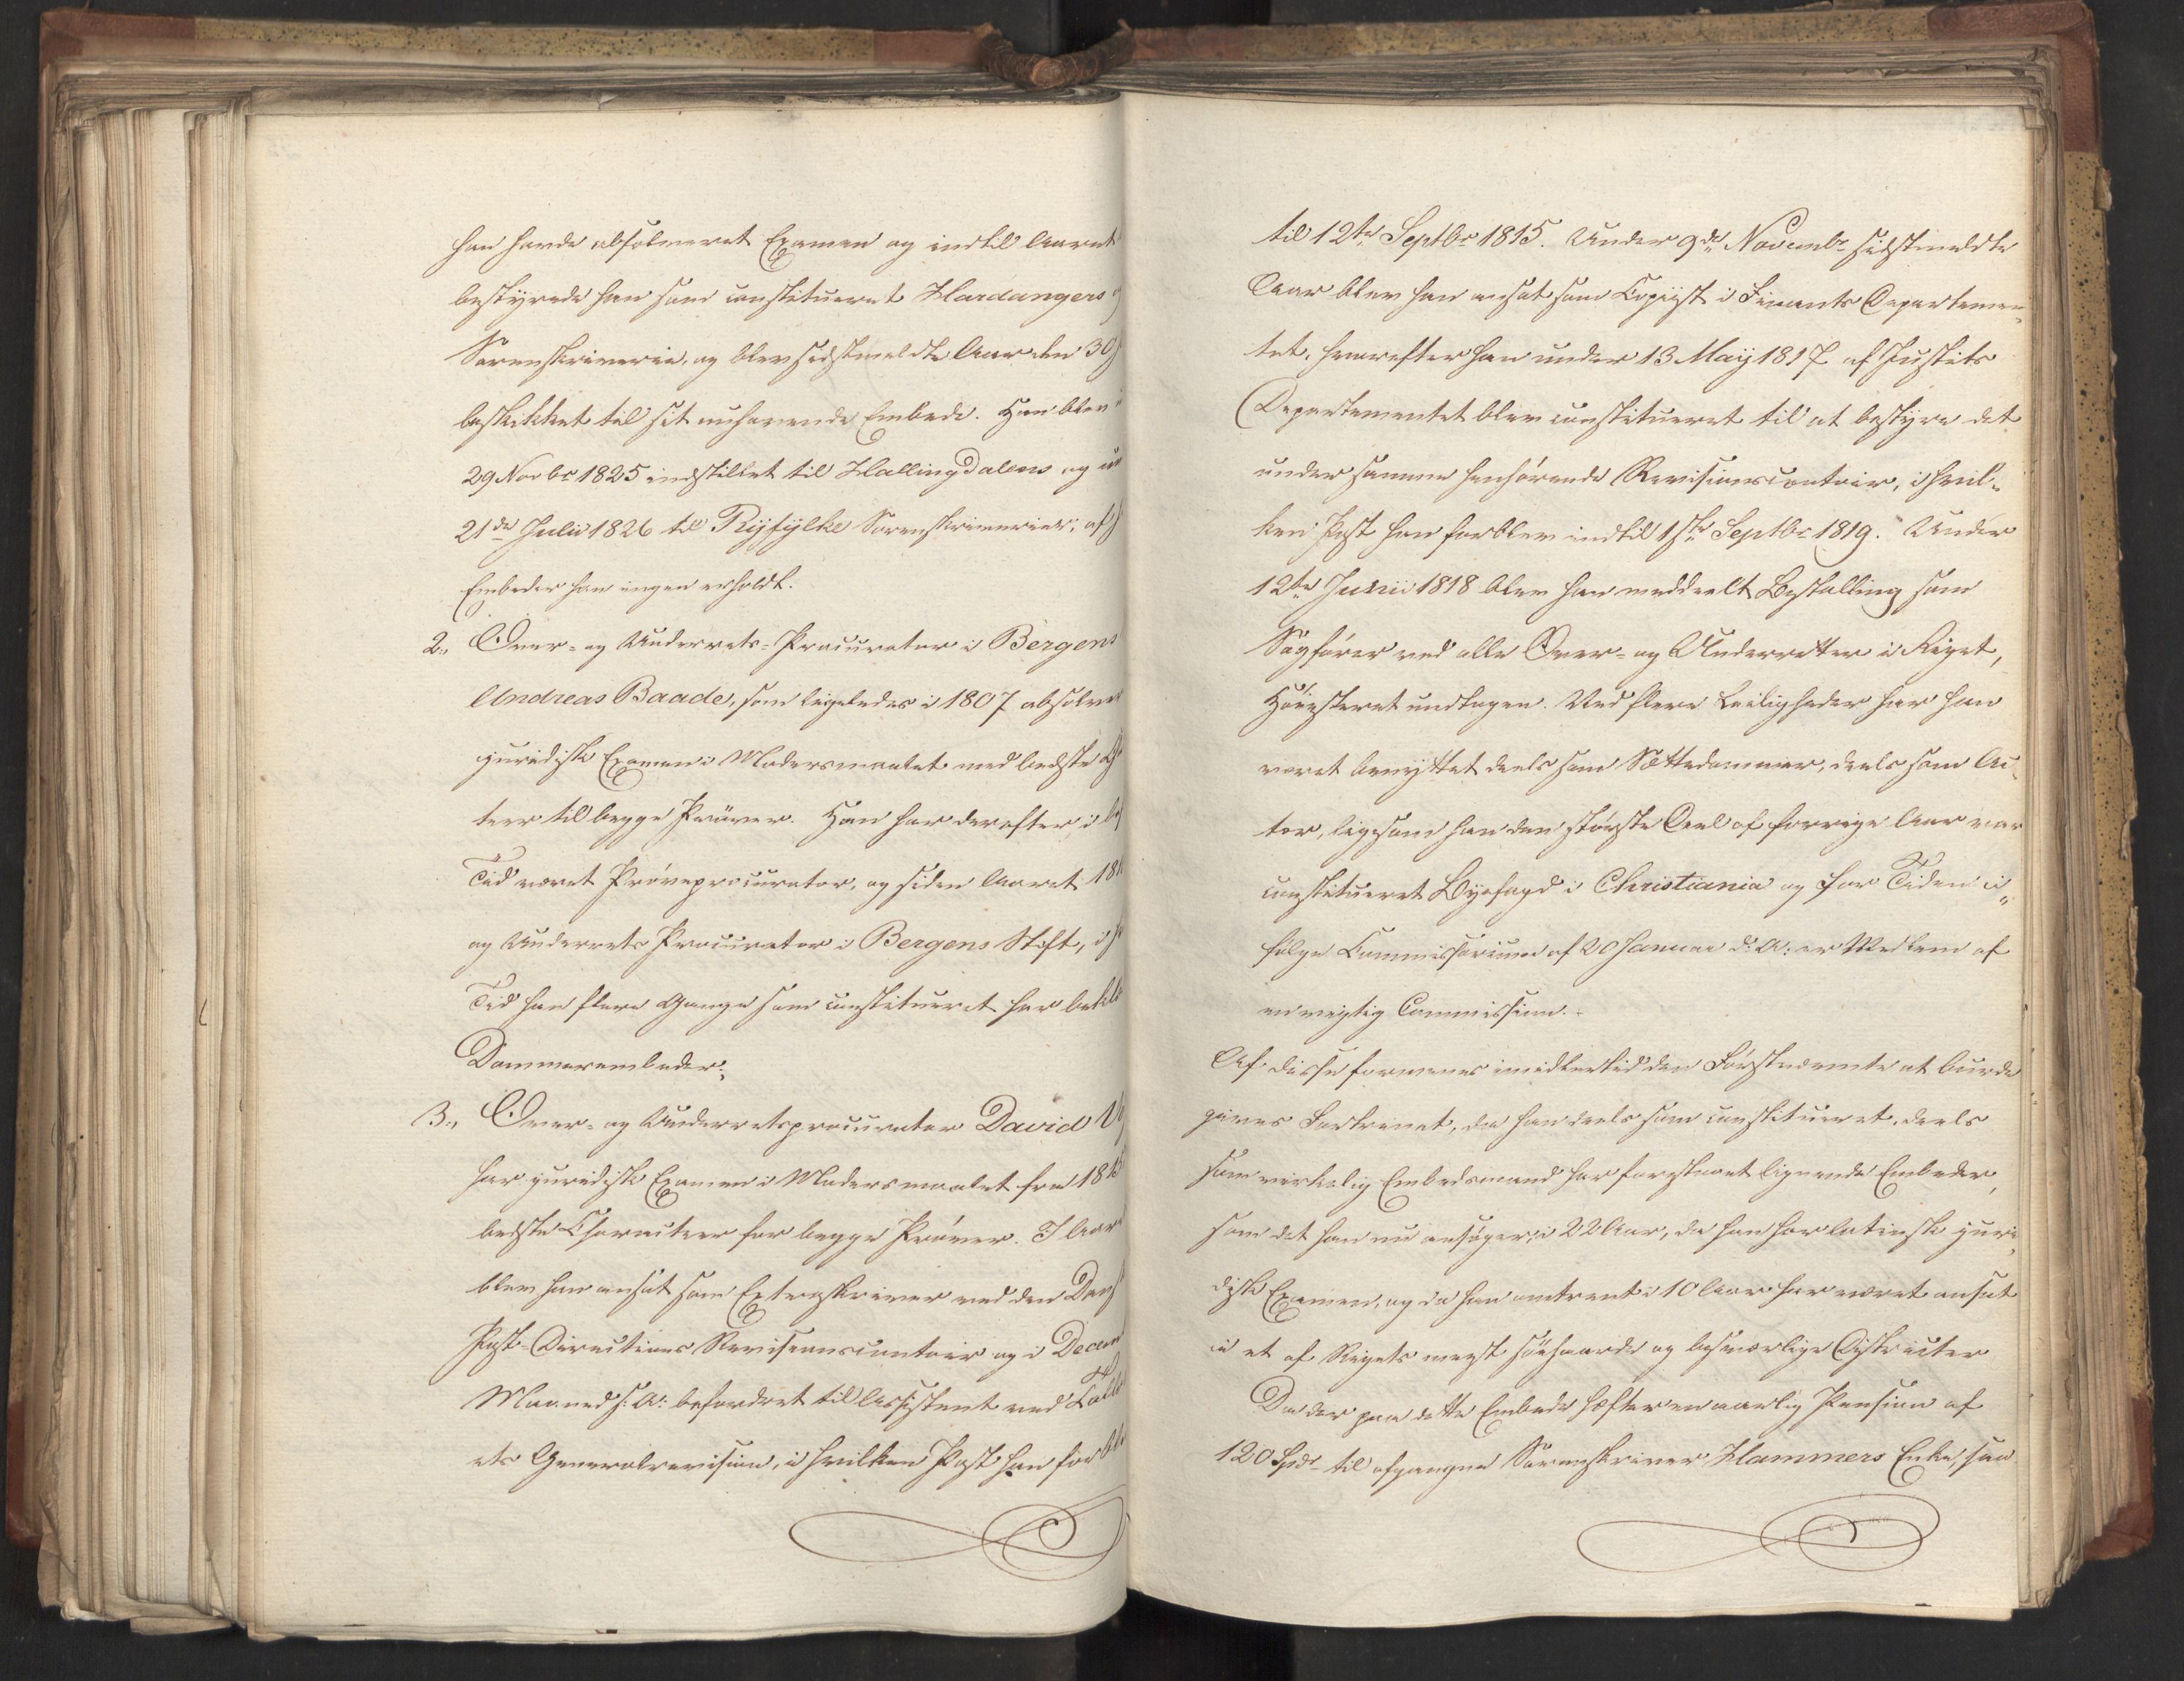 han havde absolveret Examen og indtil Aaret
bestyrede han som constitueret Hardangers
Sorenskriverie, og blev sidstmeldte Aar den 30
beskikket til sit nuhavende Embede. Han blev
29 Novbr 1825 indstillet til Hallingdalens og
21de Julii 1826 til Ryfylke Sorenskriverier; af
Embeder han ingen erholdt.
2., Over- og Underrets-Procurator i Bergens
Andreas Baade, som ligeledes i 1807 absolve
juridisk Examen i Modersmaalet med bedste
teer til begge Prøver. Han har derefter i
Tid været Prøveprocurator, og siden Aaret 18
og Underrets Procurator i Bergens Stift, i
Tid han flere Gange som constitueret har
Dommerembeder.
3., Over- og Underretsprocurator David
har juridisk Examen i Modersmaalet fra 18
bedste Characteer for begge Prøver. I Aar
blev han ansat som Extraskriver ved den
Post-Directions Revisionscontoir og i Decem
Maaned s: A: befordret til Assistent ved
ets Generalrevision, i hvilken Post han for
til 12te Septbr 1815. Under 9de Novembr sidstmeldte
Aar blev han ansat som Copiist i Finants Departemen„
tet, hvorefter han under 13 May 1817 af Justits
Departementet blev constitueret til at bestyre det
under samme henhørende Revisionscontoir, i hvil„
ken Post han forblev indtil 1ste Septbr 1819. Under
12te Junii 1818 blev han meddeelt Bestalling som
Sagfører ved alle Over- og Underretter i Riget,
Høiesteret undtagen. Ved flere Leiligheder har han
været benyttet deels som Sættedommer, deels som Ac„
tor, ligesom han den største Deel af forrige Aar var
constitueret Byefoged i Christiania og for Tiden i„
følge Commissorium af 20 Januar d: A: er Medlem af
en vigtig Commission.
Af disse formenes imidlertid den Førstnævnte at burde
gives Fortrinet, da han deels som constitueret, deels
som virkelig Embedsmand har forestaaet lignende Embeder,
som det han nu ansøger, i 22 Aar, da han har latinsk juri„
disk Examen, og da han omtrent i 10 Aar har været ansat
i et af Rigets meest og besværlige Districter
Da der paa dette Embede hefter en aarlig Pension af
120 Spd til afgangne Sorenskriver Hammers Enke, saa